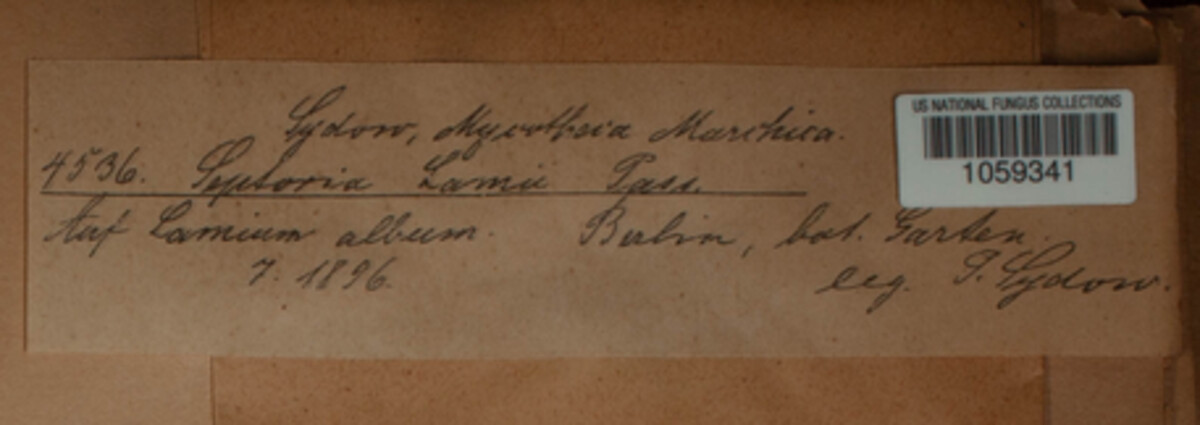 Sydow, Mycotheca Marchica.
4536. Septoria Lamii Pass.
Auf Lamium album. Berlin, bot. Garten.
7. 1896. leg. P. Sydow.
US NATIONAL FUNGUS COLLECTIONS
1059341